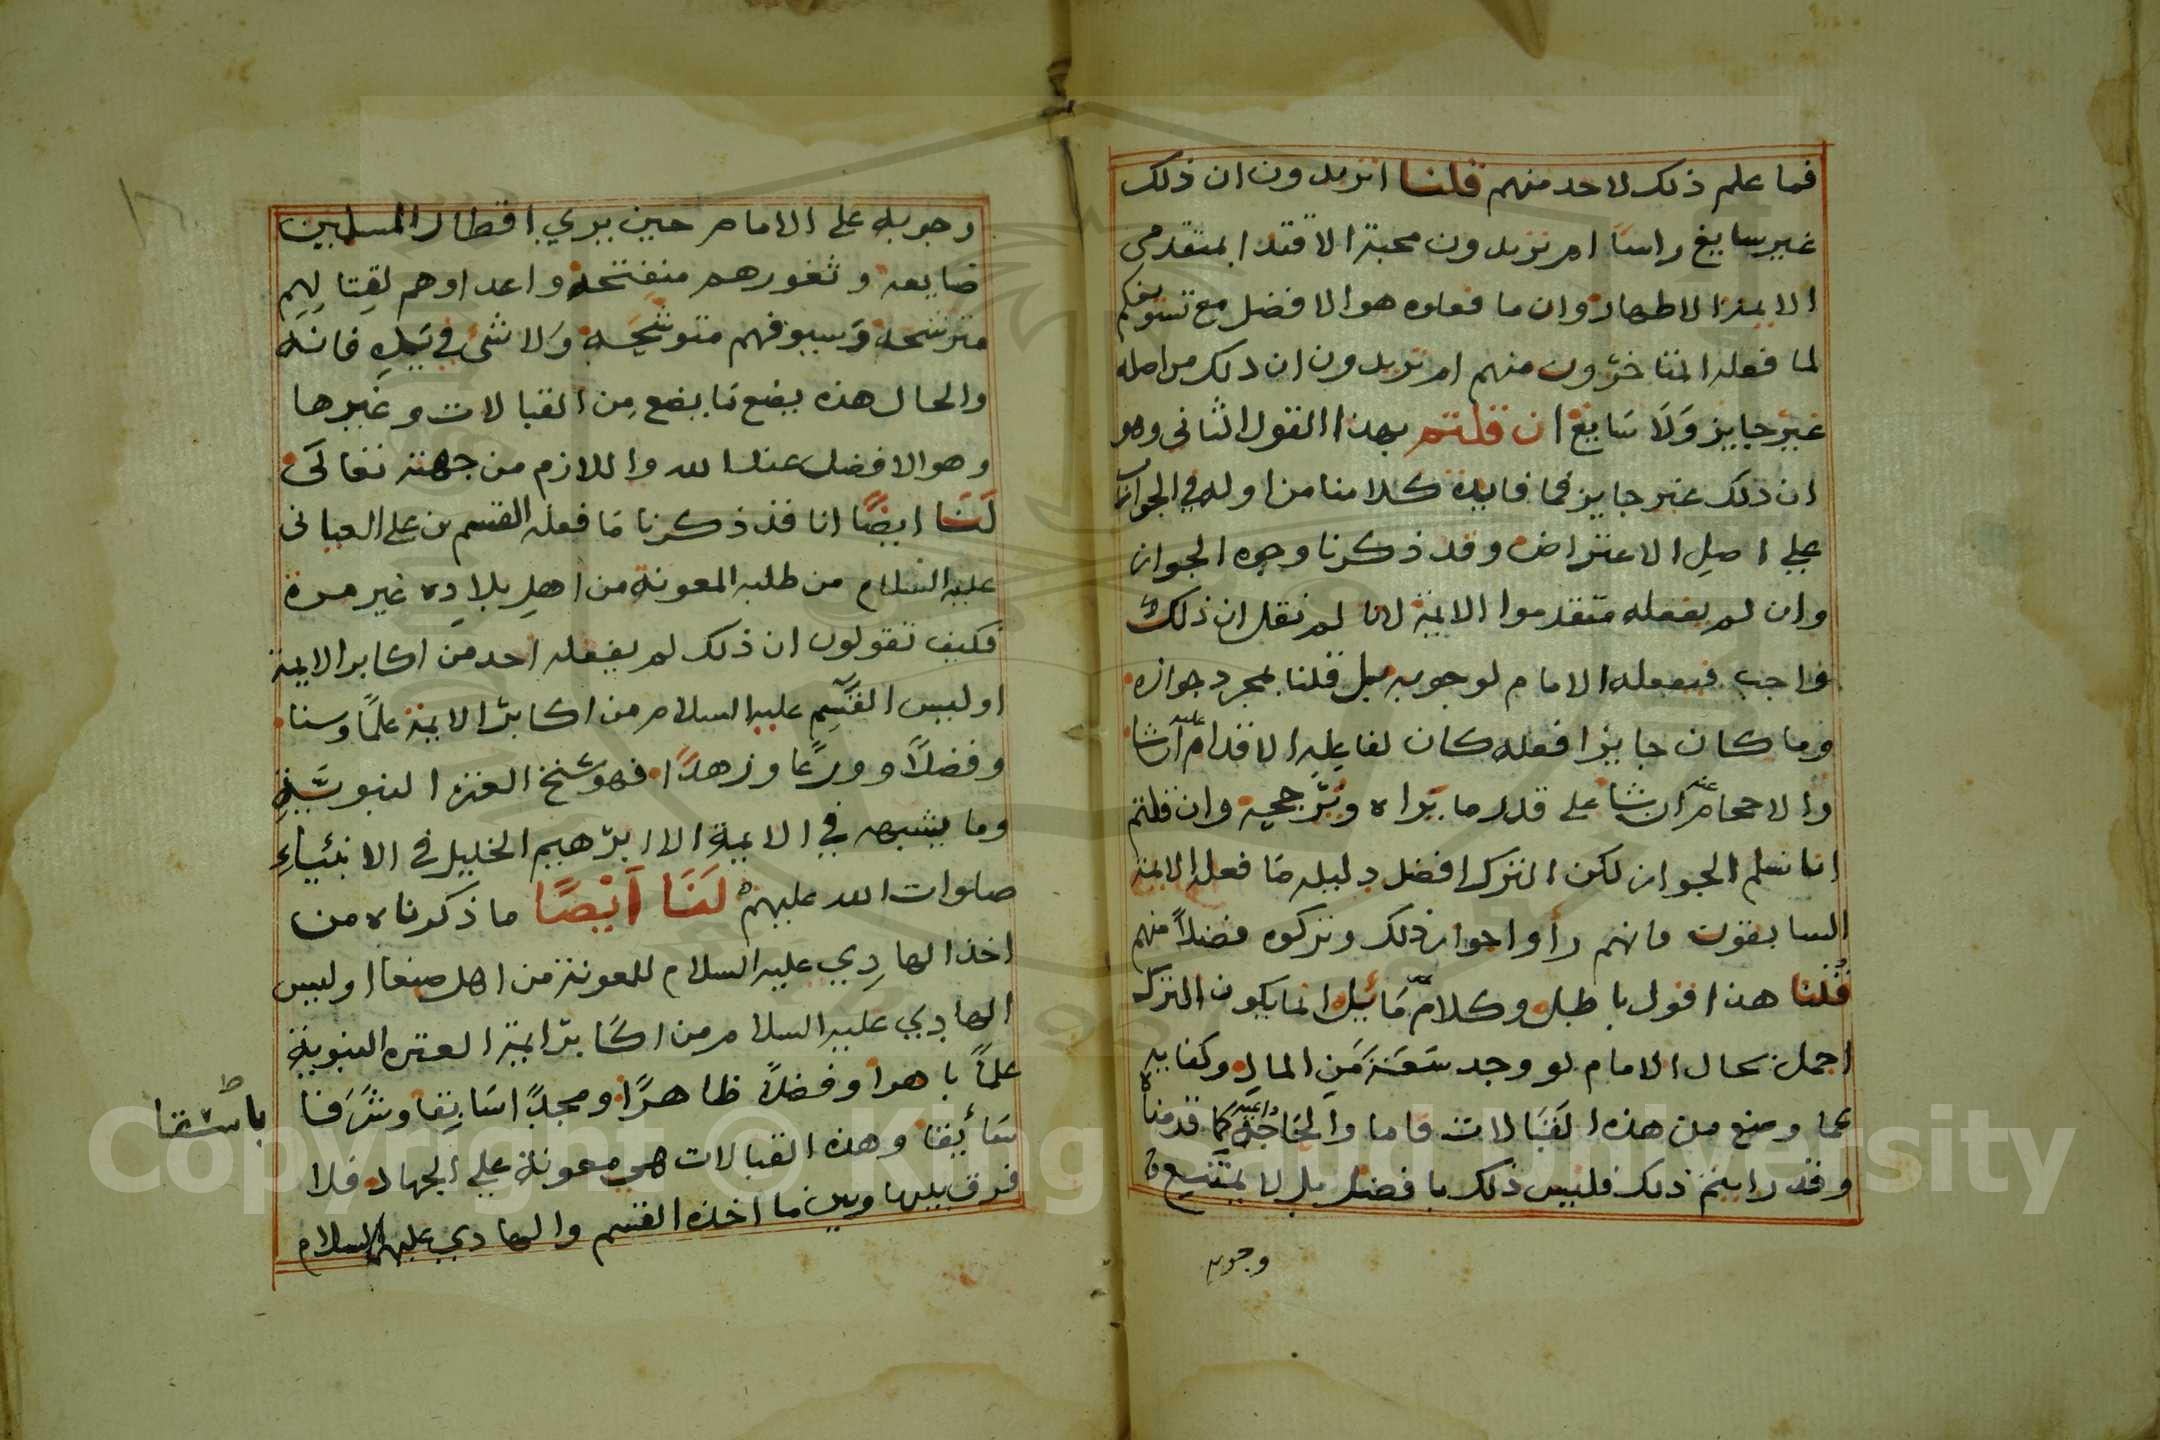 فما علم ذلك لاحد منهم قلنا اتريدون ان ذلك
غير سايغ راسا ام تريدون محبة الاقتدا بمتقدمي
الايمة الاطهار وان ما فعلوه هو الافضل مع تسويغكم
لما فعله المتاخرون منهم ام تريدون ان ذلك من اصله
غير جايز ولا سايغ ان قلتم بهذا القول الثاني وهو
ان ذلك غير جايز فما فايدة كلامنا من اوله في الجواب
على اصل الاعتراض وقد ذكرنا وجوه الجواز
وان لم يفعله متقدموا الايمة لانا لم نقل ان ذلك
واجب فيفعله الامام لوجوبه بل قلنا بمجرد جوازه
وما كان جايزا فعله كان لفاعله الاقدام عليه ان شا
والاحجام عنه ان شا على قدر ما يراه ويرجحه وان قلتم
انا نسلم الجواز لكن الترك افضل دليله ما فعله الايمة
السابقون فانهم رأوا جواز ذلك وتركوه فضلاً منهم
قلنا هذا قول باطل وكلام مائل انما يكون الترك
اجمل بحال الامام لو وجد سعة من المال وكفايه
عما ومنع من هذه القبالات فاما والحاجة داعية كما قدمناه
وقد رايتم ذلك فليس ذلك بافضل بل لا يمتنع
وجوبه
وجوبه على الامام حين يرى اقطار المسلمين
ضايعه وثغورهم منفتحة واعداوهم لقتالهم
مترشحه وسيوفهم متوشحة ولا شئ في يده فانه
والحال هذه يضع ما يضع من القبالات وغيرها
وهو الافضل عند الله واللازم من جهته تعالى
لنا ايضًا انا قد ذكرنا ما فعله القسم بن علي العياني
عليه السلام من طلبه المعونة من اهل بلاده غير مرة
فكيف تقولون ان ذلك لم يفعله احد من اكابر الايمة
اوليس القسم عليه السلام من اكابر الايمة علمًا وسنا
وفضلاً وورعًا وزهدًا فهو شيخ العترة النبوية
وما يشبهه في الايمة الا ابرهيم الخليل في الانبياء
صلوات الله عليهم لنا ايضًا ما ذكرناه من
اخذ الهادي عليه السلام للمعونة من اهل صنعا اوليس
الهادي عليه السلام من اكابر ايمة العتره النبوية
علمًا باهرا وفضلاً ظاهرًا ومجدًا سابقا وشرفا
باسقا
سابقا وهذه القبالات هي معونة على الجهاد فلا
فرق بينها وبين ما اخذه القسم والهادي عليهما السلام
Copyright © King Saud University